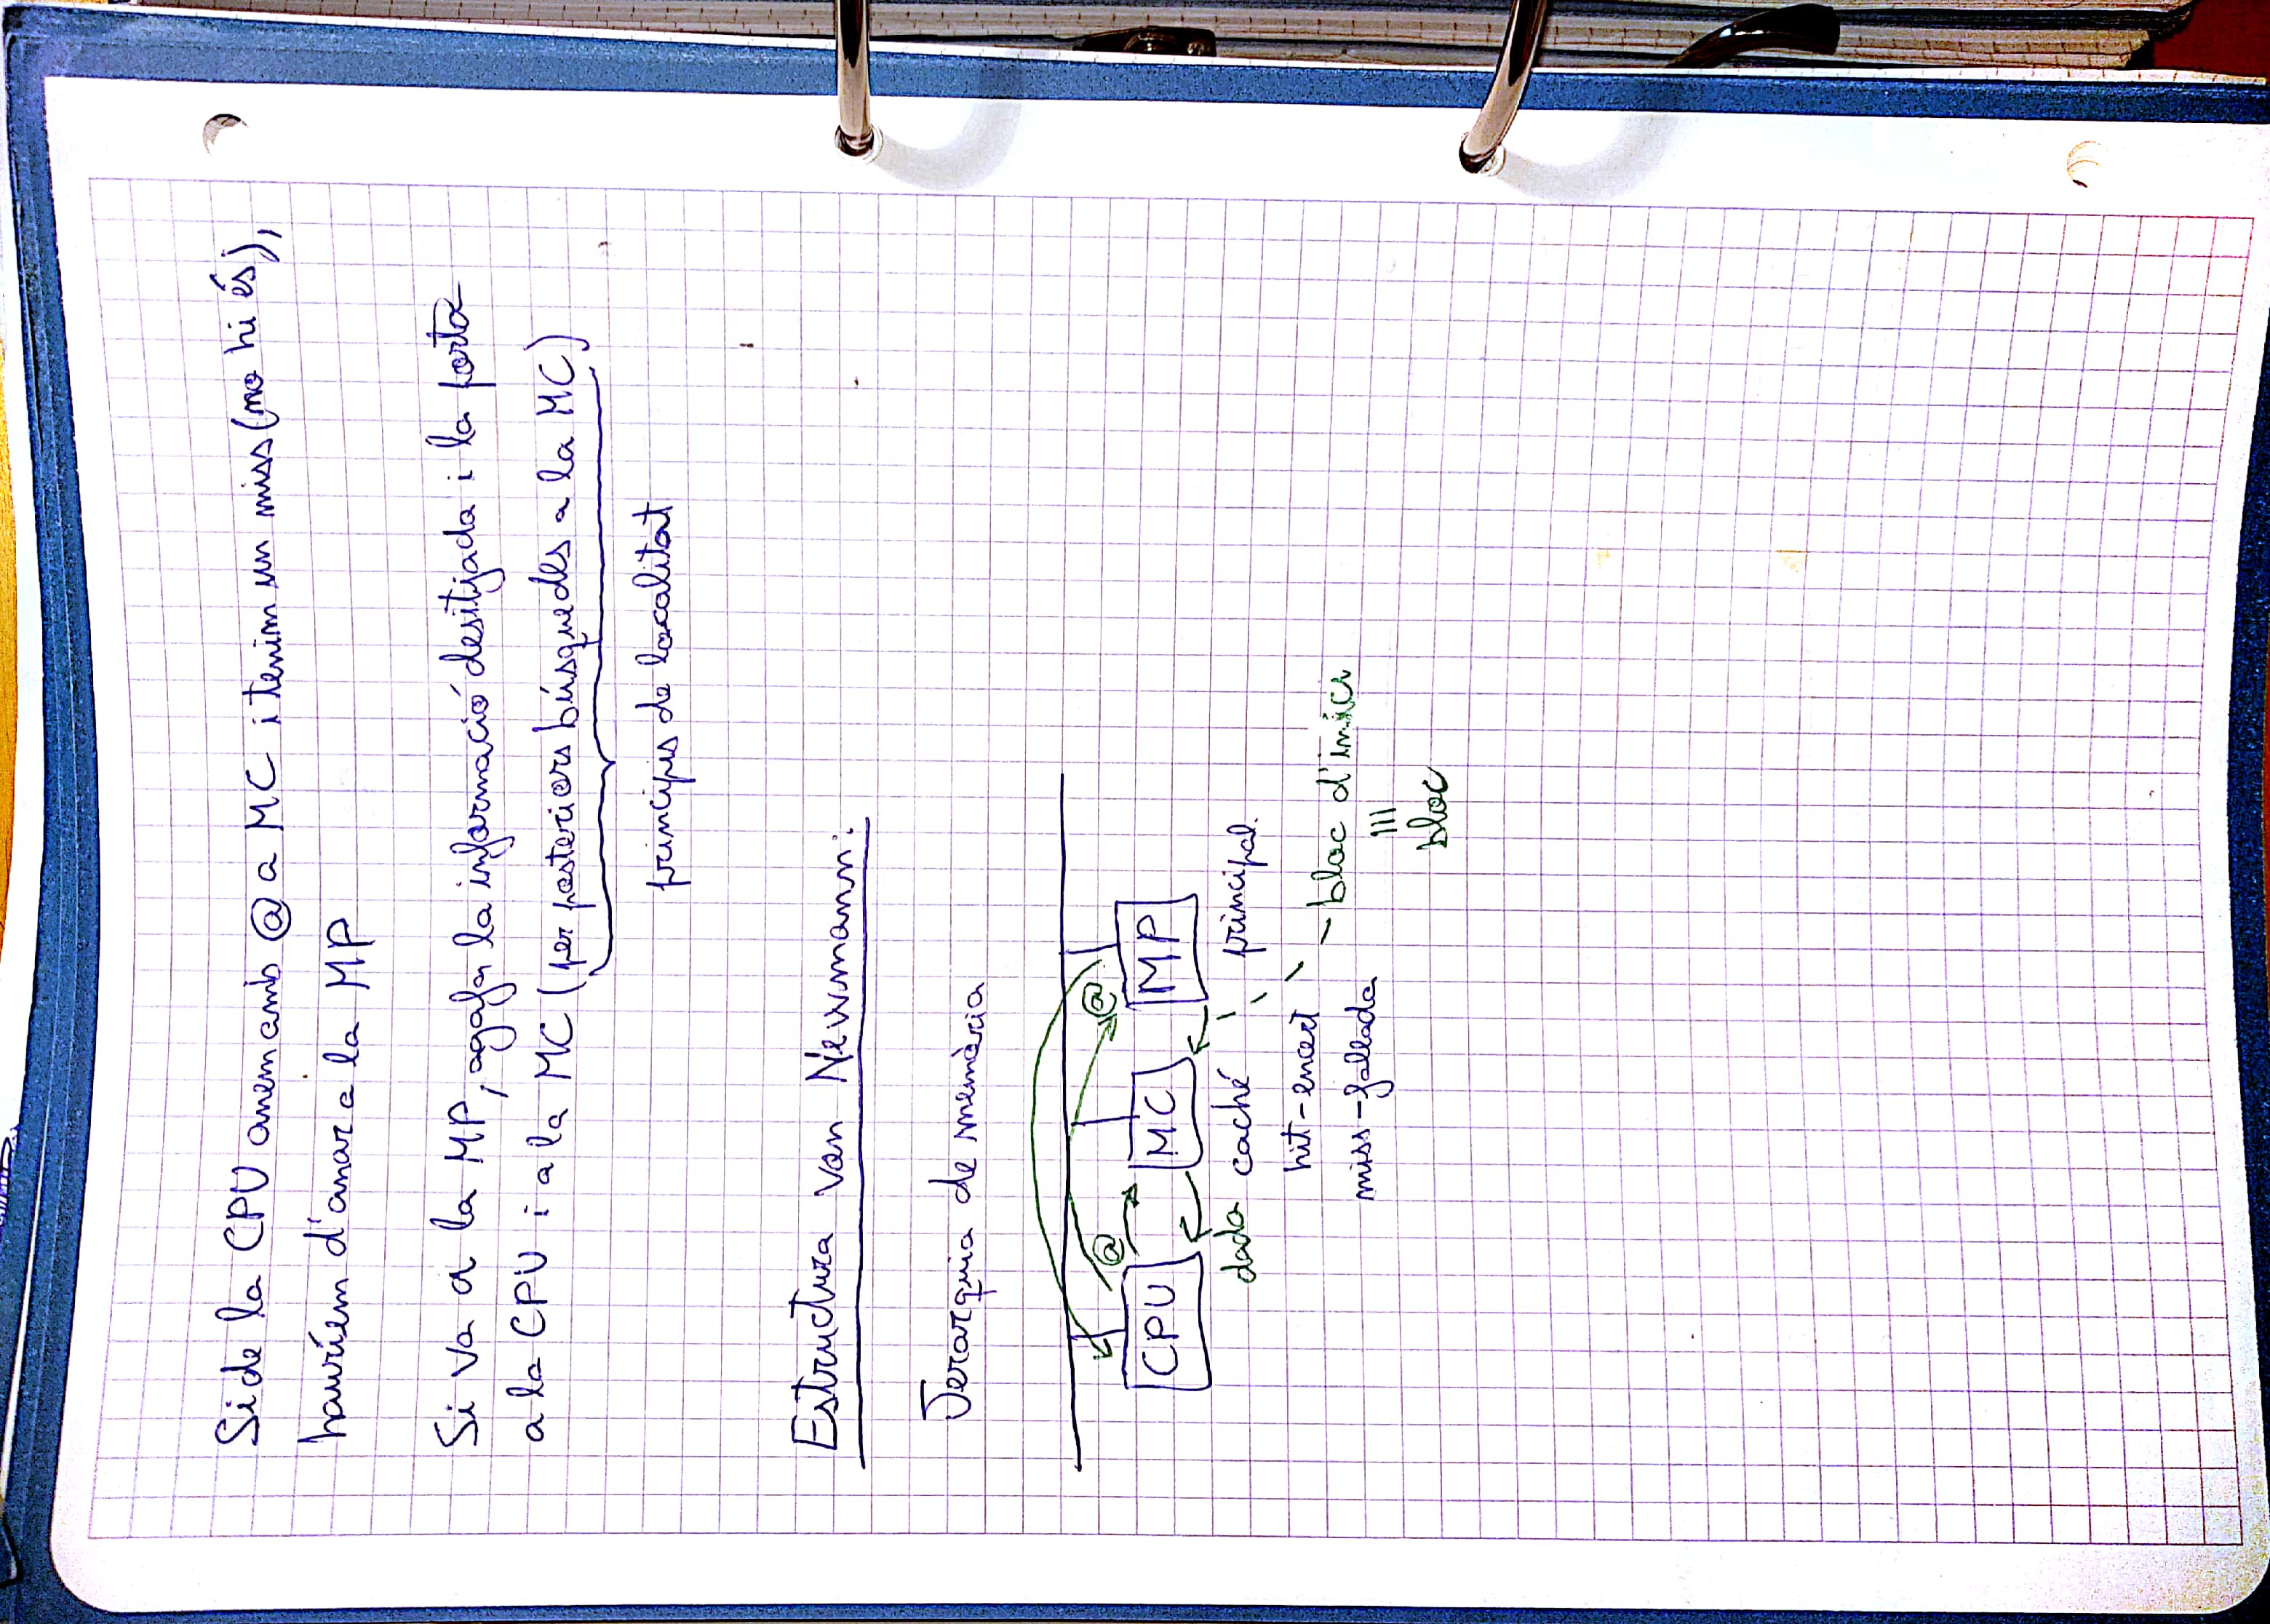 Si de la CPU anem amb @ a MC i tenim un miss (no hi és),
hauríem d'anar a la MP
Si va a la MP, agafa la informació desitjada i la porta
a la CPU i a la MC (per posteriors búsquedes a la MC)
principis de localitat
Estructura von Newmann:
Jerarquia de memòria
@ @
CPU MC MP
dada caché principal.
hit-encert
bloc d'inici
miss-fallada
bloc